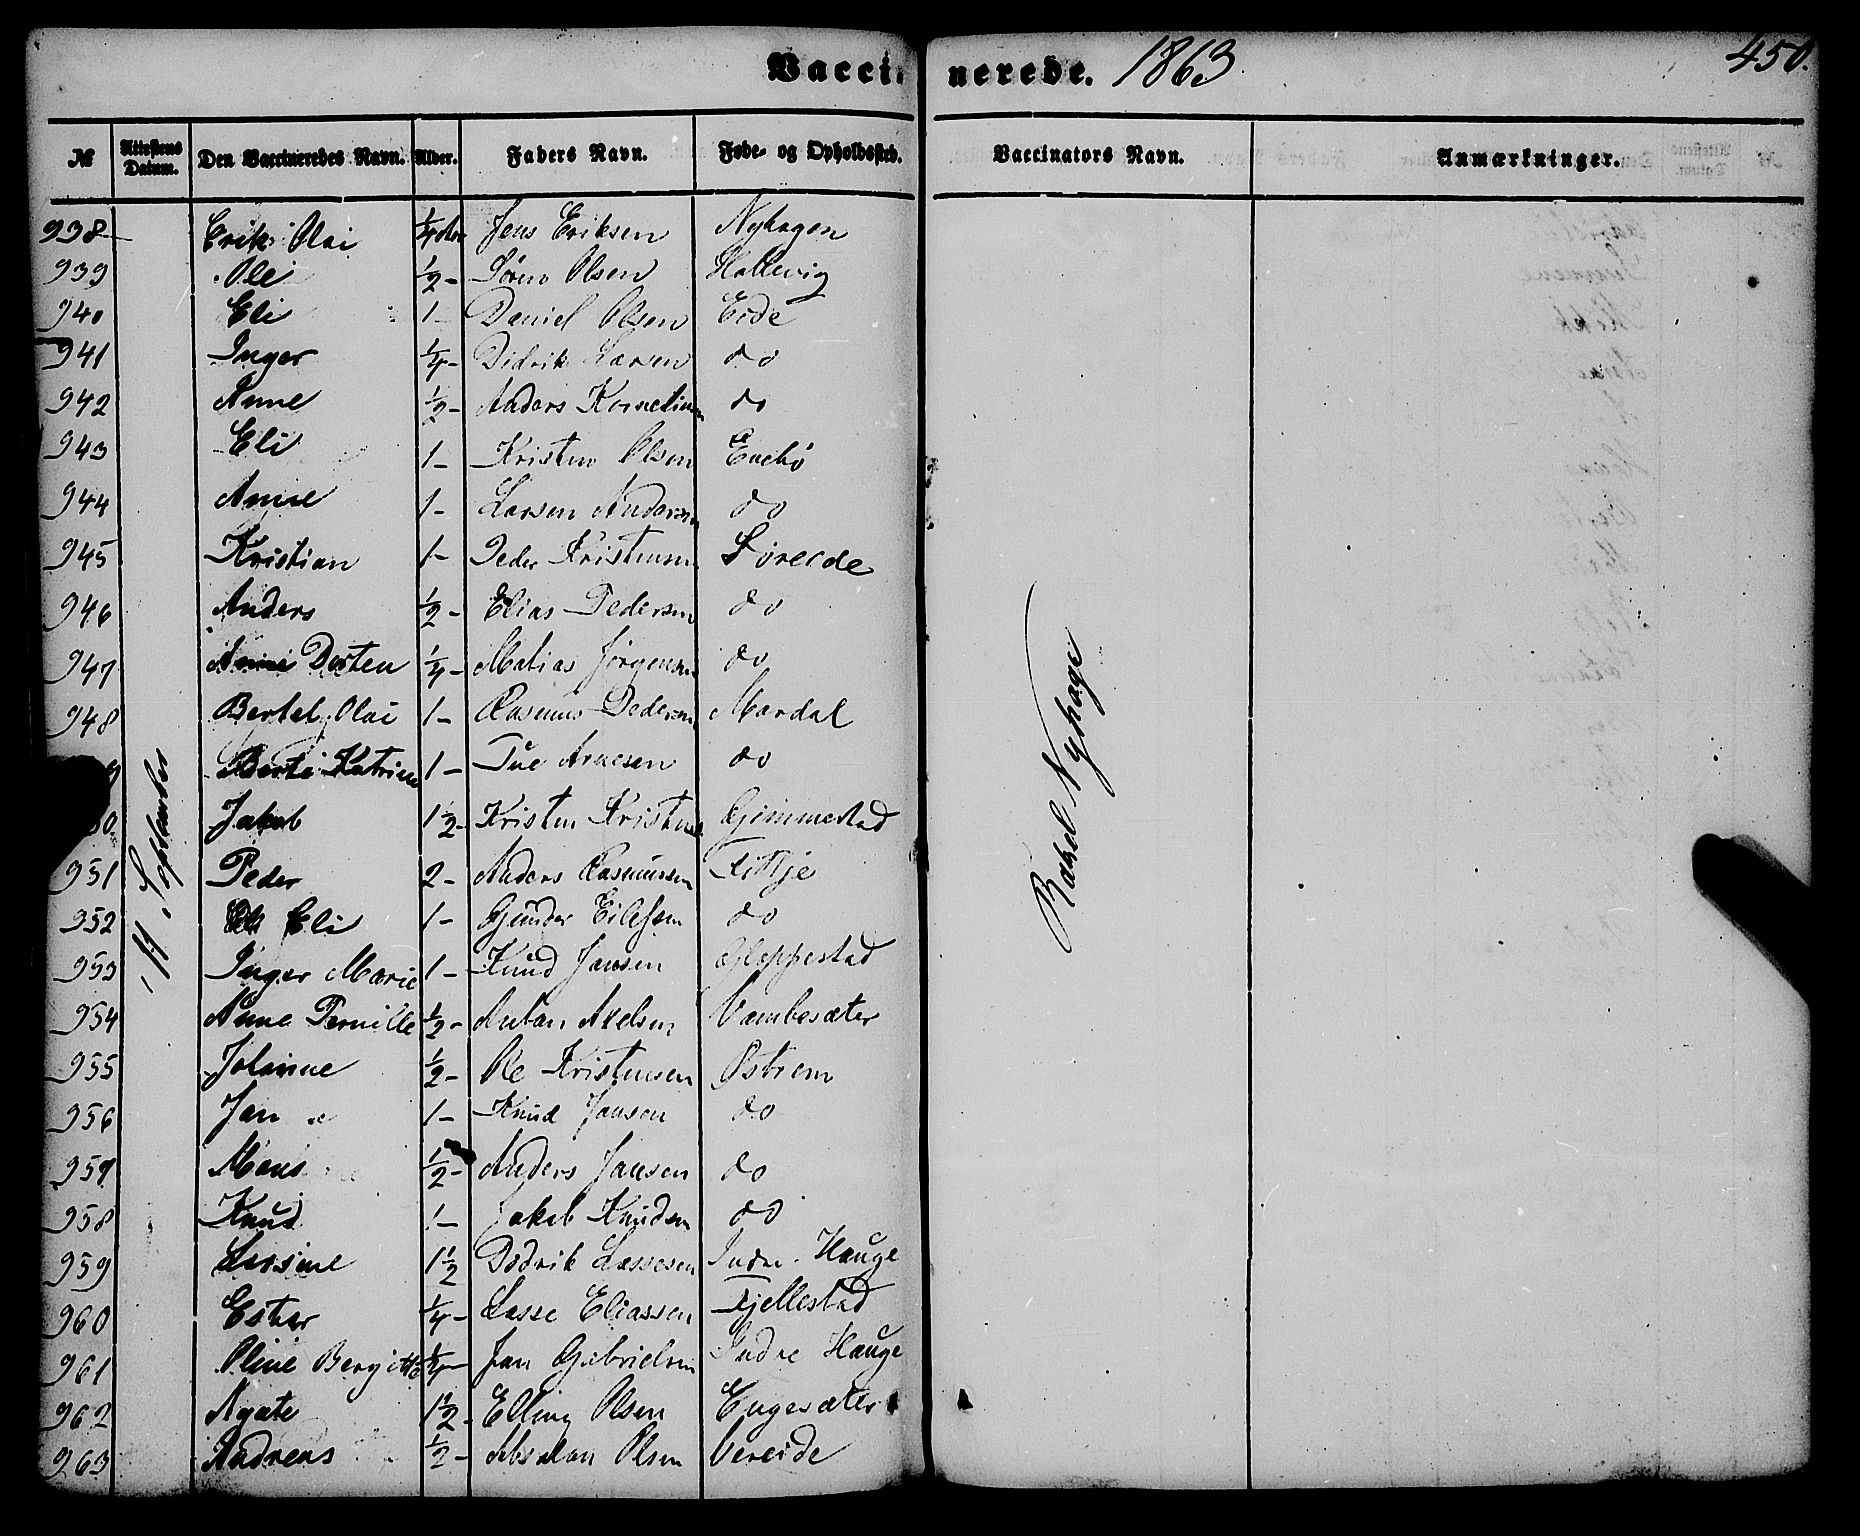 Vaccinerede. 1863
450.
№ Attestens Datum. Den Vaccineredes Navn. Alder. Faders Navn. Føde- og Opholdssted. Vaccinators Navn. Anmærkninger.
938 Erik Olai 1/4 Jens Eriksen Nyhagen
939 Ole 1/2 - Sören Olsen Hallevig
940 Eli 1 - Daniel Olsen Eide
941 Inger 1/4 - Didrik Larsen do
942 Anne 1/2 - Anders do
943 Eli 1 - Kristen Olsen Enebø
944 Anne 1 - Larsen Andersen do
945 Kristian 1 - Peder Kristensen Søreide
946 Anders 1/2 - Elias Pedersen do
947 Anne Dorten 1/4 - Matias Jørgensen do
948 Bertel Olai 1 - Rasmus Pedersen Mardal
Berte Katrine 1 - Tue Arnesen do
Jakob 1 1/2 - Kristen Kristensen Gimmestad
951 Peder 2 - Anders Rasmussen Fitje
952 Eli 1 - Gunder Eilefsen do
953 Inger Marie 1 - Knud Jansen Gloppestad
954 Anne Pernille 1/2 - Antan Axelsen Vambesæter
955 Johanne 1/2 - Ole Kristensen Østrem
956 Jan 1 - Knud Jansen do
957 Mons 1/2 - Anders Jansen do
958 Knud 1 - Jakob Knudsen do
959 Larsine 1 1/2 Didrik Lassesen Indre Hauge
960 Ester 1/4 - Lasse Eliassen Fjellestad
961 Oline Bergitte 1/4 - Jan Gabrielsen Indre Hauge
962 Agate 1 1/2 - Elling Olsen Engesæter
963 Andreas 1/2 - Absalon Olsen Vereide
11 September
Rakel Nyhage